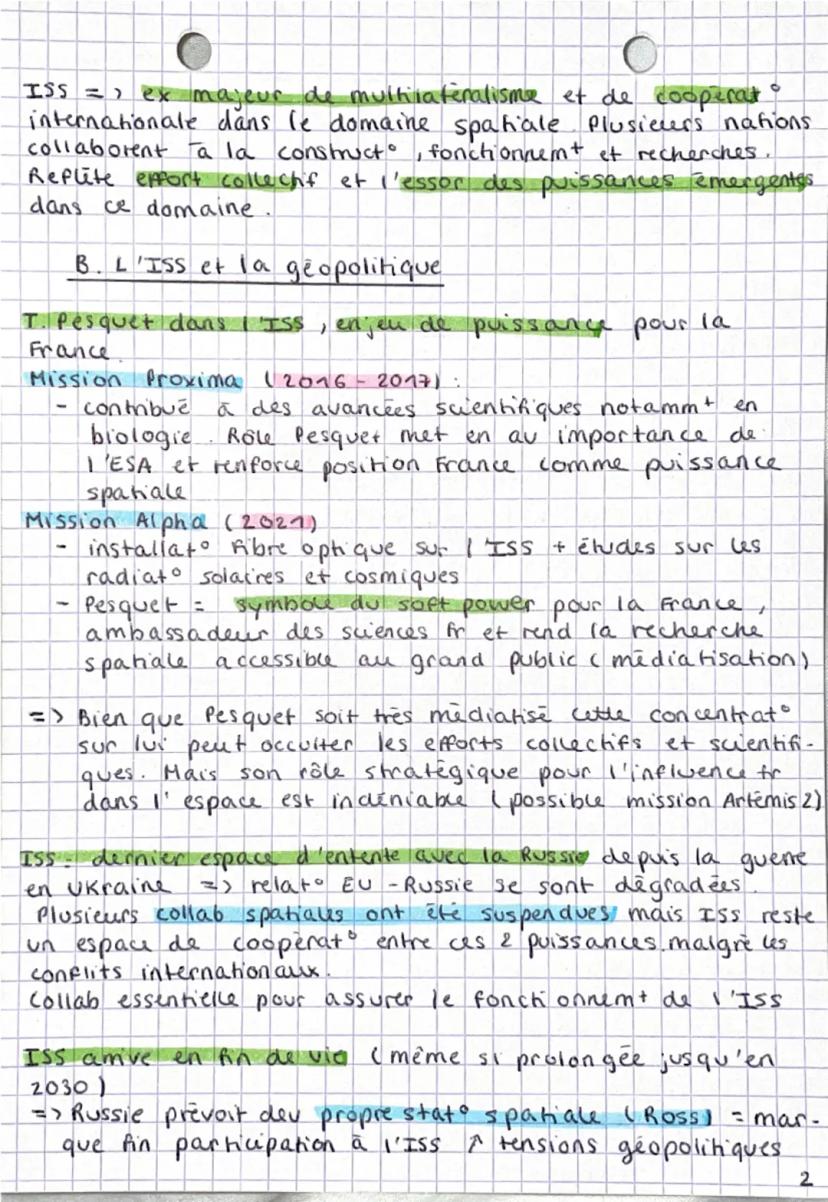 ISS => ex majeur de multilatéralisme et de coopérat°
internationale dans le domaine spatiale. Plusieurs nations
collaborent à la construct°, fonctionnemt et recherches.
Reflète effort collectif et l'essor des puissances émergentes
dans ce domaine.
B. L'ISS et la géopolitique
T. Pesquet dans l'ISS, enjeu de puissance pour la
France.
Mission Proxima (2016-2017) :
- contribué à des avancées scientifiques notammt en
biologie. Rôle Pesquet met en av importance de
l'ESA et renforce position France comme puissance
spatiale
Mission Alpha (2021)
- installat° fibre optique sur l'ISS + études sur les
radiat° solaires et cosmiques
- Pesquet = symbole du soft power pour la France,
ambassadeur des sciences fr et rend la recherche
spatiale accessible au grand public (médiatisation)
=> Bien que Pesquet soit très médiatisé cette concentrat°
sur lui peut occulter les efforts collectifs et scientifi-
ques. Mais son rôle stratégique pour l'influence fr
dans l'espace est indéniable (possible mission Artémis 2)
ISS = dernier espace d'entente avec la Russie depuis la guerre
en Ukraine => relat° EU-Russie se sont dégradées.
Plusieurs collab spatiales ont été suspendues mais ISS reste
un espace de coopérat° entre ces 2 puissances malgré les
conflits internationaux.
Collab essentielle pour assurer le fonctionnemt de l'ISS
ISS arrive en fin de vie (même si prolongée jusqu'en
2030)
=> Russie prévoit dev propre stat° spatiale (Ross) = mar-
que fin participation à l'ISS ↗ tensions géopolitiques
2